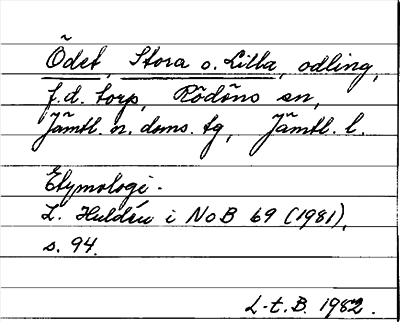 Ödet, Stora o. Lilla, odling,
f.d. torp, Rödöns sn,
Jämtl. n. doms. tg, Jämtl. l.
Etymologi.
L. Huldén i NoB 69 (1981),
s. 94.
L-t. B. 1982.